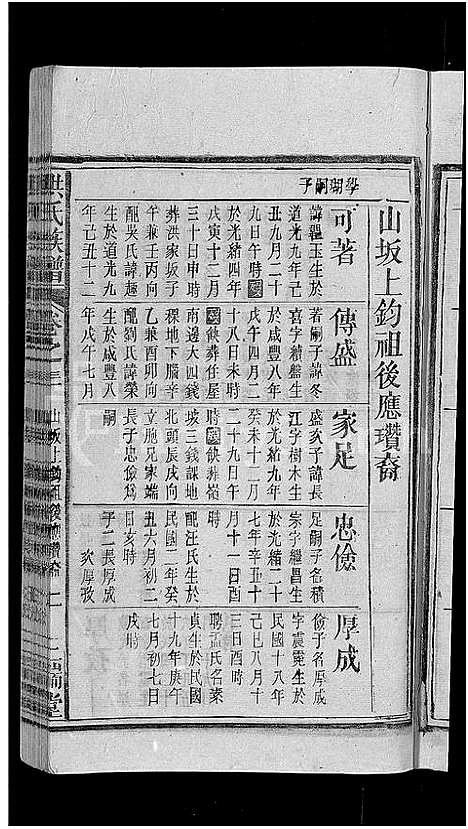 山坂上鈞祖後應瓚裔
學瑚嗣子
可著
諱韞玉生於
道光九年己
丑九月二十
九日午時歿
於光緒四年
戊寅十二月
三十日申時
葬洪家坂子
午兼壬丙向
配吳氏諱
生於道光九
年己丑十二
傳盛
若嗣子諱冬
喜字續盤生
於咸豐八年
戊午四月二
十八日未時
歿葬任屋
南邊大四錢
稞地下廳辛
乙兼酉卯向
配劉氏諱榮
生於咸豐八
年戊午七月
家足
盛次子諱長
江字樹木生
於光緒九年
癸未十二月
二十九日午
時歿葬嶺
坡三錢課地
北頭辰戌向
立胞兄家端
長子忠儉為
嗣
忠儉
足嗣子名積
宗字繼昌生
於光緒二十
七年辛丑十
月十一日酉
時
配汪氏生於
民國二年癸
丑六月初二
日亥時
子二長厚成
次厚玫
厚成
儉子名厚成
字震霓生於
民國十八年
己巳八月十
三日酉時
聘孟氏名菜
貞生於民國
十九年庚午
七月初七日
戌時
洪氏族譜
卷之三
山坂上鈞祖後應瓚裔
二